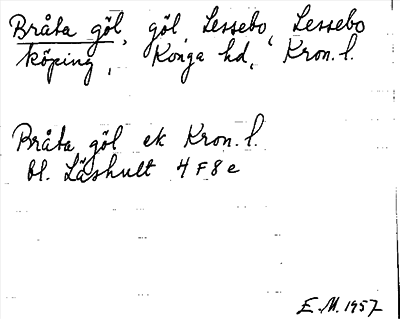 Bråta göl, göl, Lessebo, Lessebo
köping, Konga hd, Kron. l.
Bråta göl ek Kron. l.
bl. Läshult 4 F 8 e
E.M. 1957